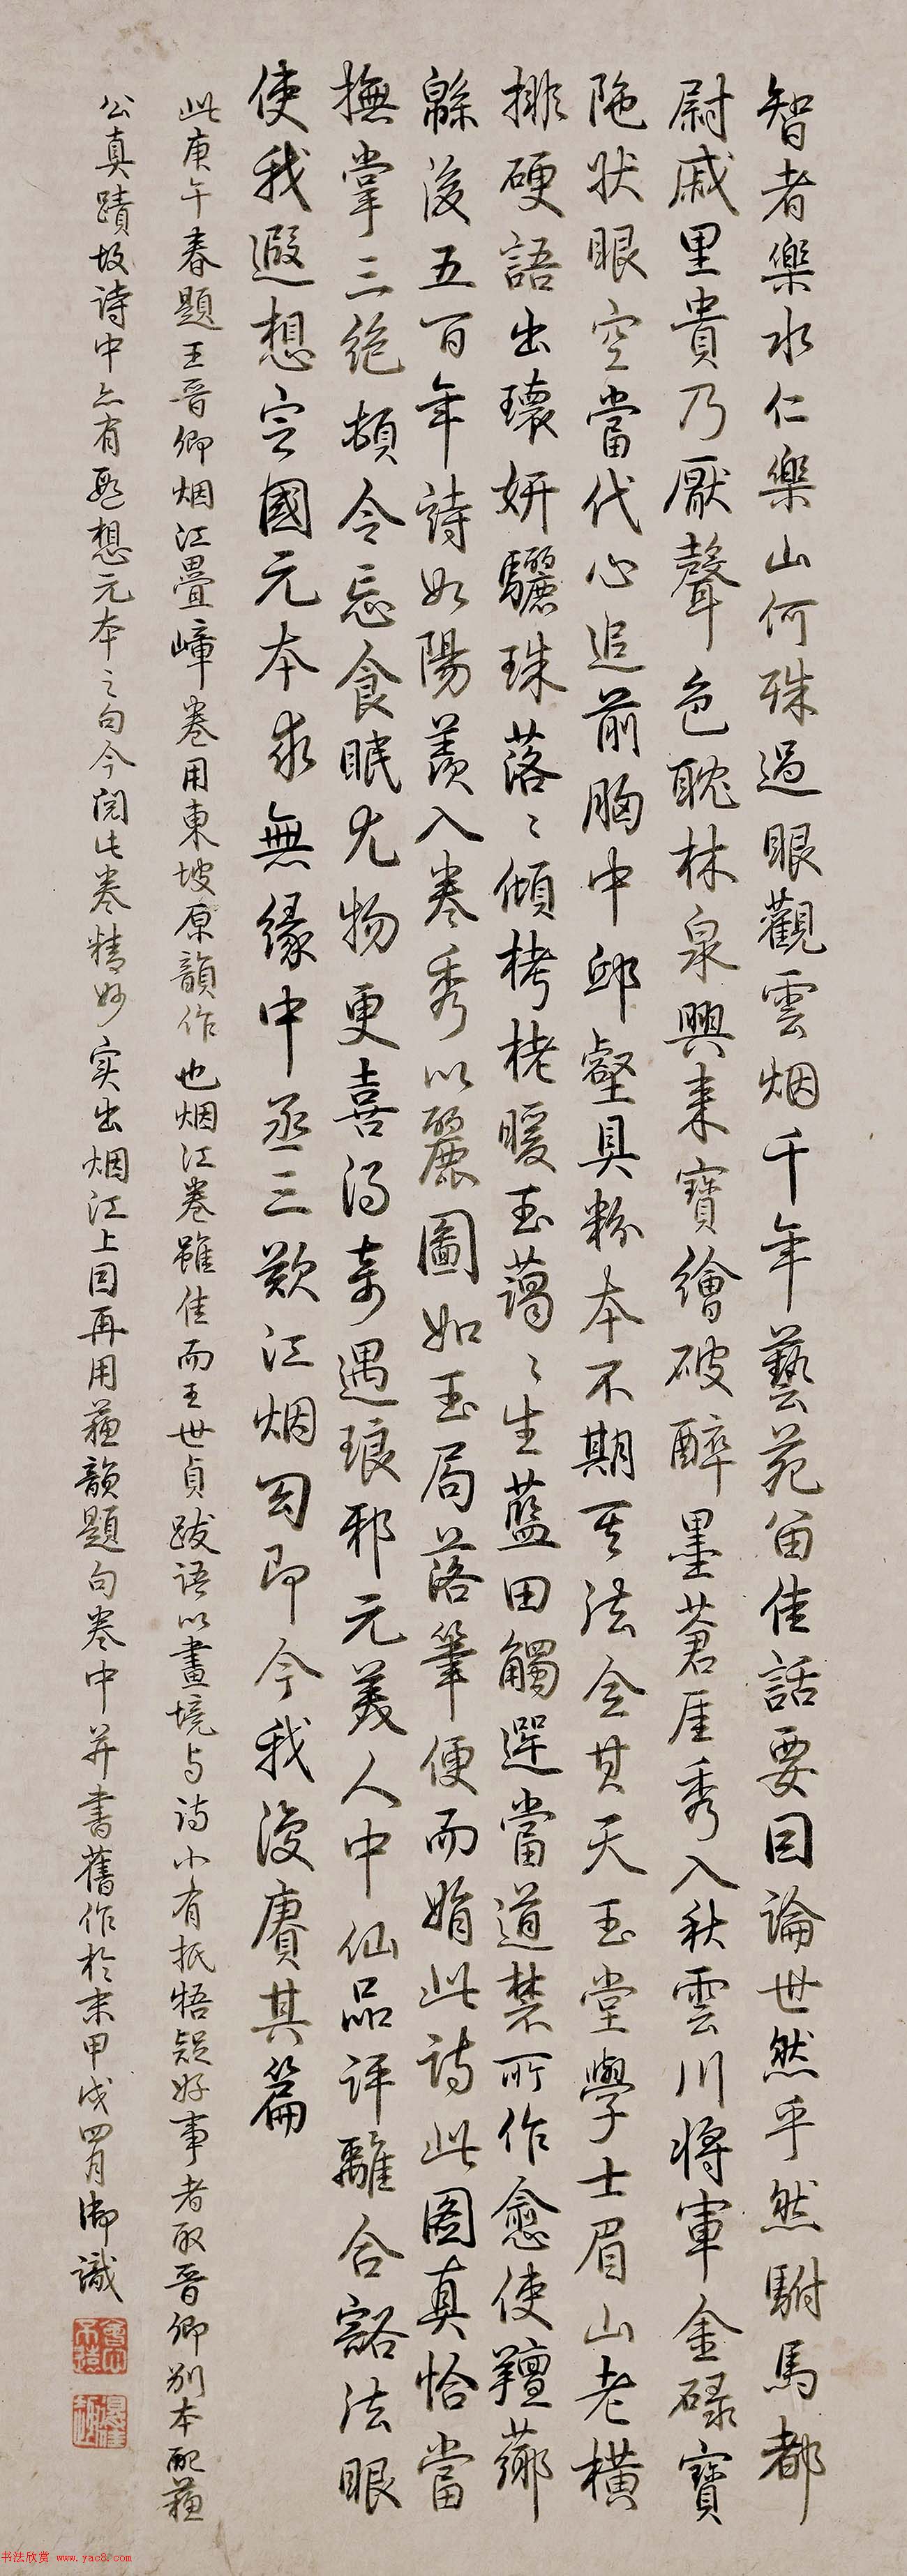 智者樂水仁樂山何殊過眼觀雲烟千年藝苑留佳話要因論世然乎然駙馬都
尉戚里貴乃厭聲色耽林泉興來寶繪破醉墨蒼厓秀入秋雲川將軍金碌寶
陁狀眼空當代心追前胸中邱壑具粉本不期其法合其天玉堂學士眉山老橫
排硬語出瓌妍驪珠落〻傾栲栳暖玉藹〻生藍田觸邏當道禁所作愈使羶薌
緜後五百年詩如陽羨入卷秀以麗圖如玉局落筆便而娟此詩此圖真恰當
撫掌三絶頓令忘食眠尤物更喜得奇遇琅邪元美人中仙品評離合豁法眼
使我遐想㝎國元本求無緣中丞三歎江烟句即今我復賡其篇
此庚午春題王晉卿烟江疊嶂卷用東坡原韻作也烟江卷雖佳而王世貞跋語以畫境与詩小有抵牾疑好事者取晉卿別本配蘇
公真蹟故詩中亦有遐想元本之句今閱此卷精妙实出烟江上因再用蘇韻題句卷中并書舊作於末甲戌四月御識
书法欣赏 www.yac8.com